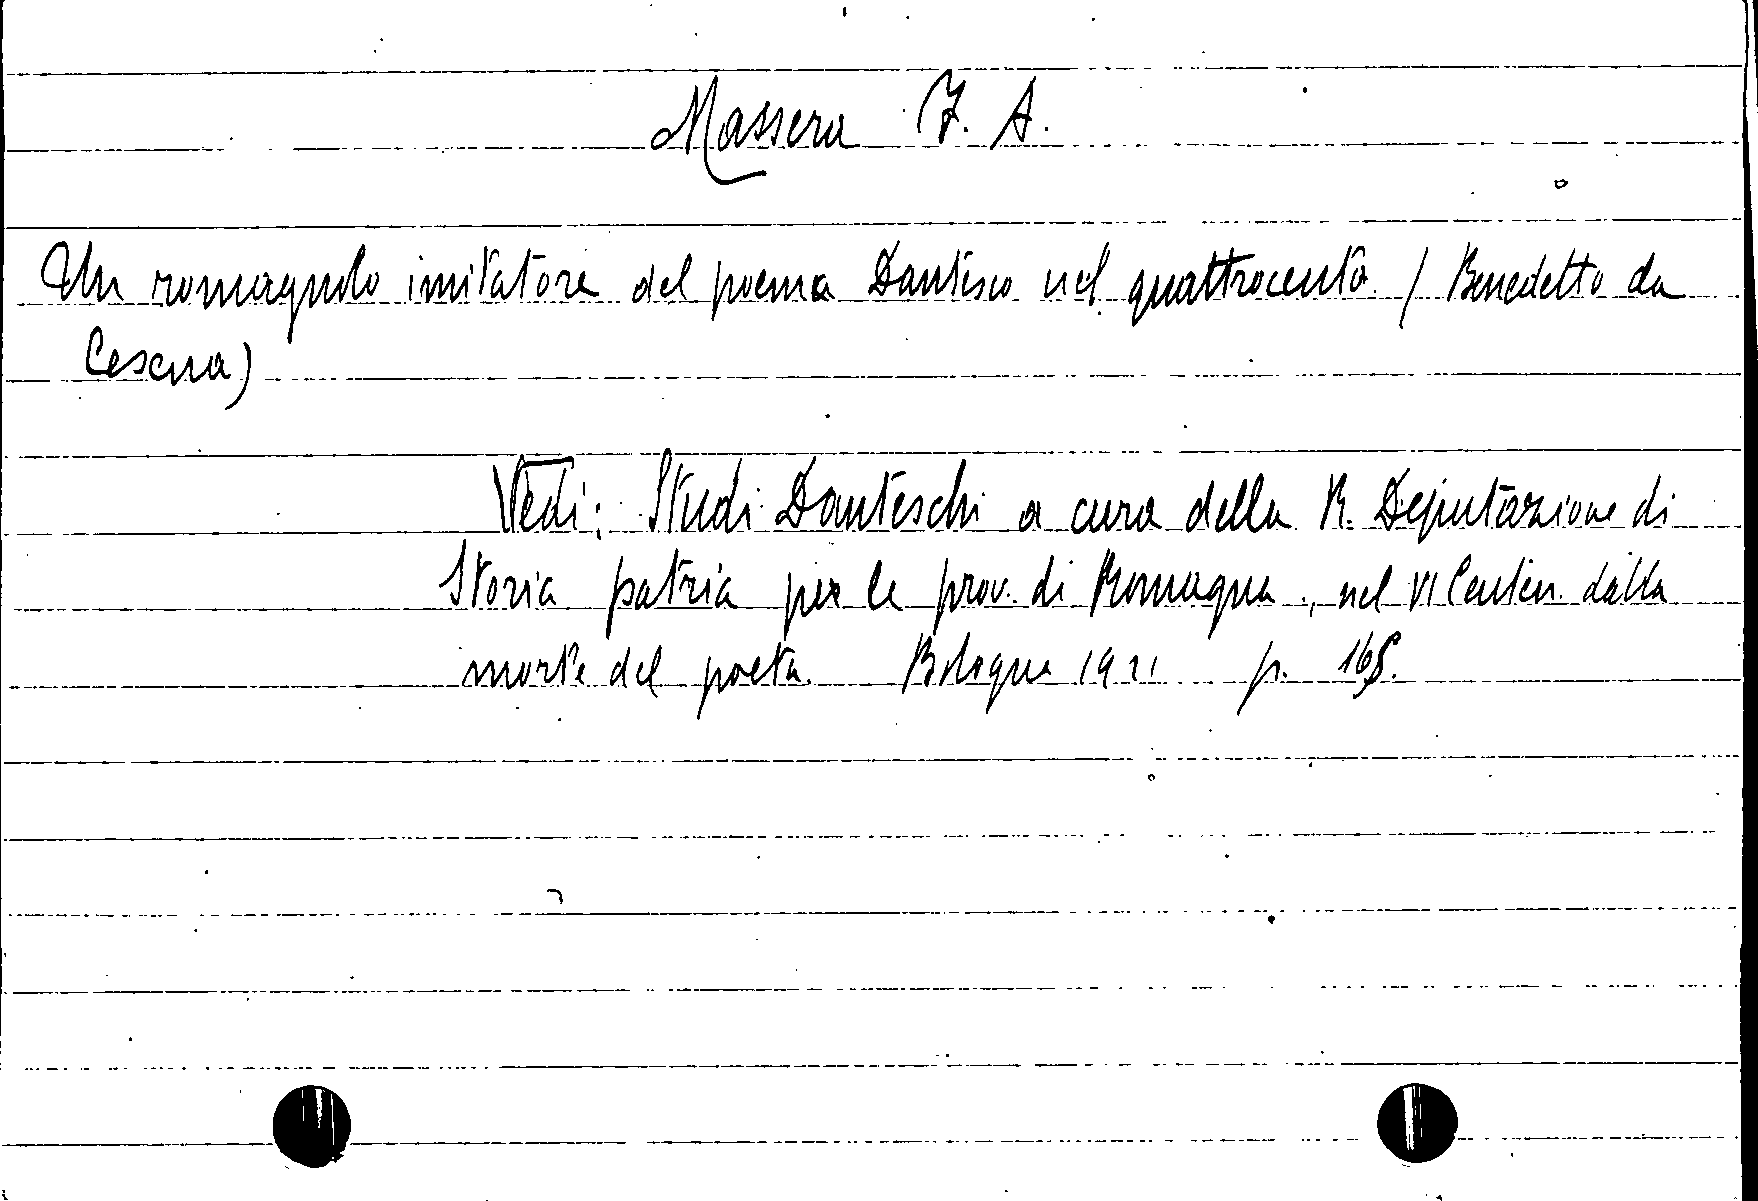 Massera F. A.
Un romagnolo imitatore del poema Dantesco nel quattrocento (Benedetto da
Cesena)
Vedi: Studi Danteschi a cura della R. Deputazione di
Storia patria per le prov. di Romagna, nel VI Centen. dalla
morte del poeta. Bologna 1921 p. 165.